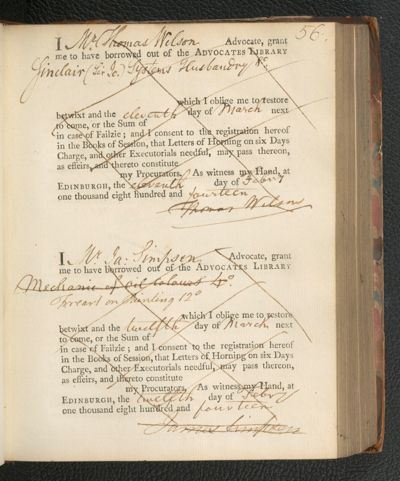 56.
I Mr. Thomas Wilson Advocate, grant
me to have borrowed out of the ADVOCATES LIBRARY
Sinclair (Sir Jo.) Systems Husbandry 8o.
which I oblige me to restore
betwixt and the eleventh day of March next
to come, or the Sum of
in case of Failzie; and I consent to the registration hereof
in the Books of Session, that Letters of Horning on six Days
Charge, and other Executorials needful, may pass thereon,
as effeirs, and thereto constitute
my Procurators. As witness my Hand, at
EDINBURGH, the eleventh day of Febry
one thousand eight hundred and fourteen
Thomas Wilson
I Mr. Ja: Simpson Advocate, grant
me to have borrowed out of the ADVOCATES LIBRARY
Mechanic of Oil Colours 4o.
on Painting 12o
which I oblige me to restore
betwixt and the twelfth day of March next
to come, or the Sum of
in case of Failzie; and I consent to the registration hereof
in the Books of Session, that Letters of Horning on six Days
Charge, and other Executorials needful, may pass thereon,
as effeirs, and thereto constitute
my Procurators. As witness my Hand, at
EDINBURGH, the twelfth day of Febry
one thousand eight hundred and fourteen
James Simpson